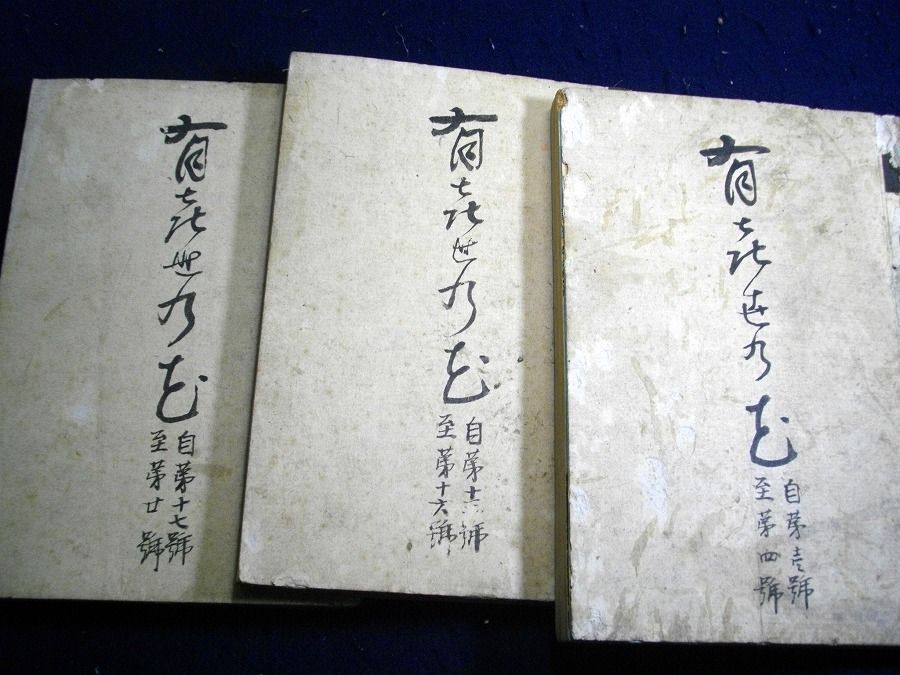 有喜世乃花
自第壱號
至第四號
有喜世乃花
自第十三號
至第十六號
有喜世乃花
自第十七號
至第廿號